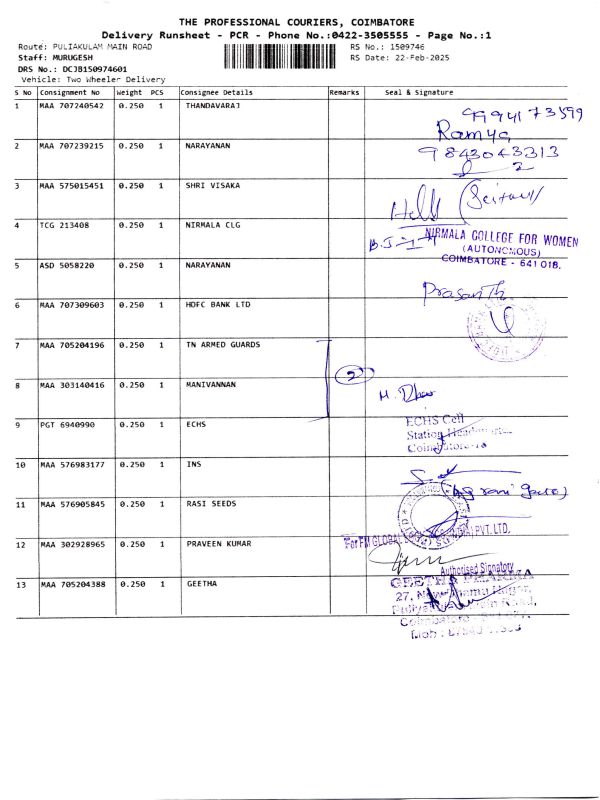 THE PROFESSIONAL COURIERS, COIMBATORE
Delivery Runsheet - PCR - Phone No.:0422-3505555 - Page No.:1
Route: PULIAKULAM MAIN ROAD RS No.: 1509746
Staff: MURUGESH RS Date: 22-Feb-2025
DRS No.: DCJB150974601
Vehicle: Two Wheeler Delivery
S No Consignment No Weight PCS Consignee Details Remarks Seal & Signature
1 MAA 707240542 0.250 1 THANDAVARAJ
9994173599
Ramya
2 MAA 707239215 0.250 1 NARAYANAN 9843043313
3 MAA 575015451 0.250 1 SHRI VISAKA
4 TCG 213408 0.250 1 NIRMALA CLG
NIRMALA COLLEGE FOR WOMEN
(AUTONOMOUS)
COIMBATORE - 641 018.
5 ASD 5058220 0.250 1 NARAYANAN
Prasanth
6 MAA 707309603 0.250 1 HDFC BANK LTD
7 MAA 705204196 0.250 1 TN ARMED GUARDS
2
8 MAA 303140416 0.250 1 MANIVANNAN
9 PGT 6940990 0.250 1 ECHS
ECHS Cell
Station Headquarters
Coimbatore-18
10 MAA 576983177 0.250 1 INS
11 MAA 576905845 0.250 1 RASI SEEDS
12 MAA 302928965 0.250 1 PRAVEEN KUMAR
For FM GLOBAL PVT. LTD.
Authorised Signatory
13 MAA 705204388 0.250 1 GEETHA
GEETHA
27,
Nagar,
Road,
Coimbatore
Mob :